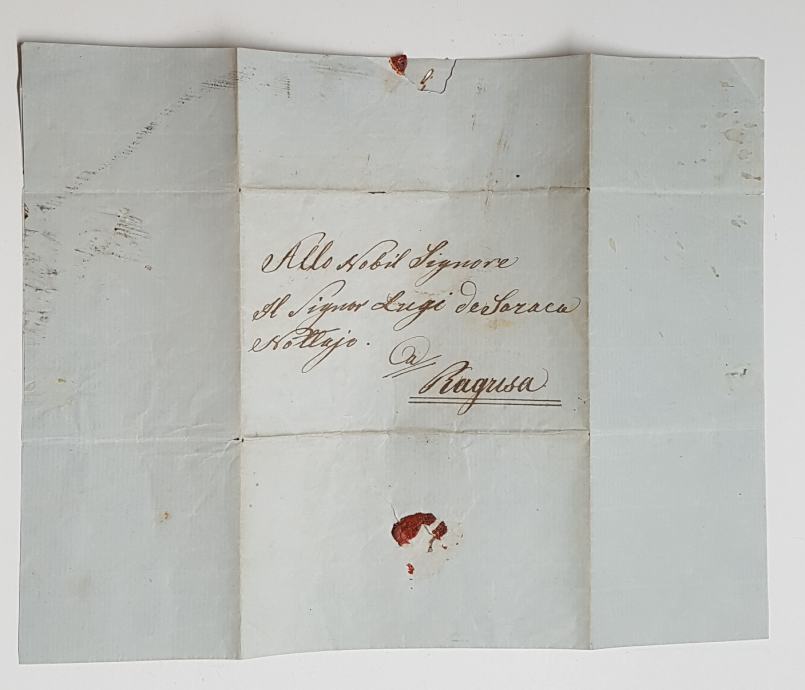 Allo Nobil Signore
Il Signor Lugi de Soraca
Nottajo.
a
Ragusa